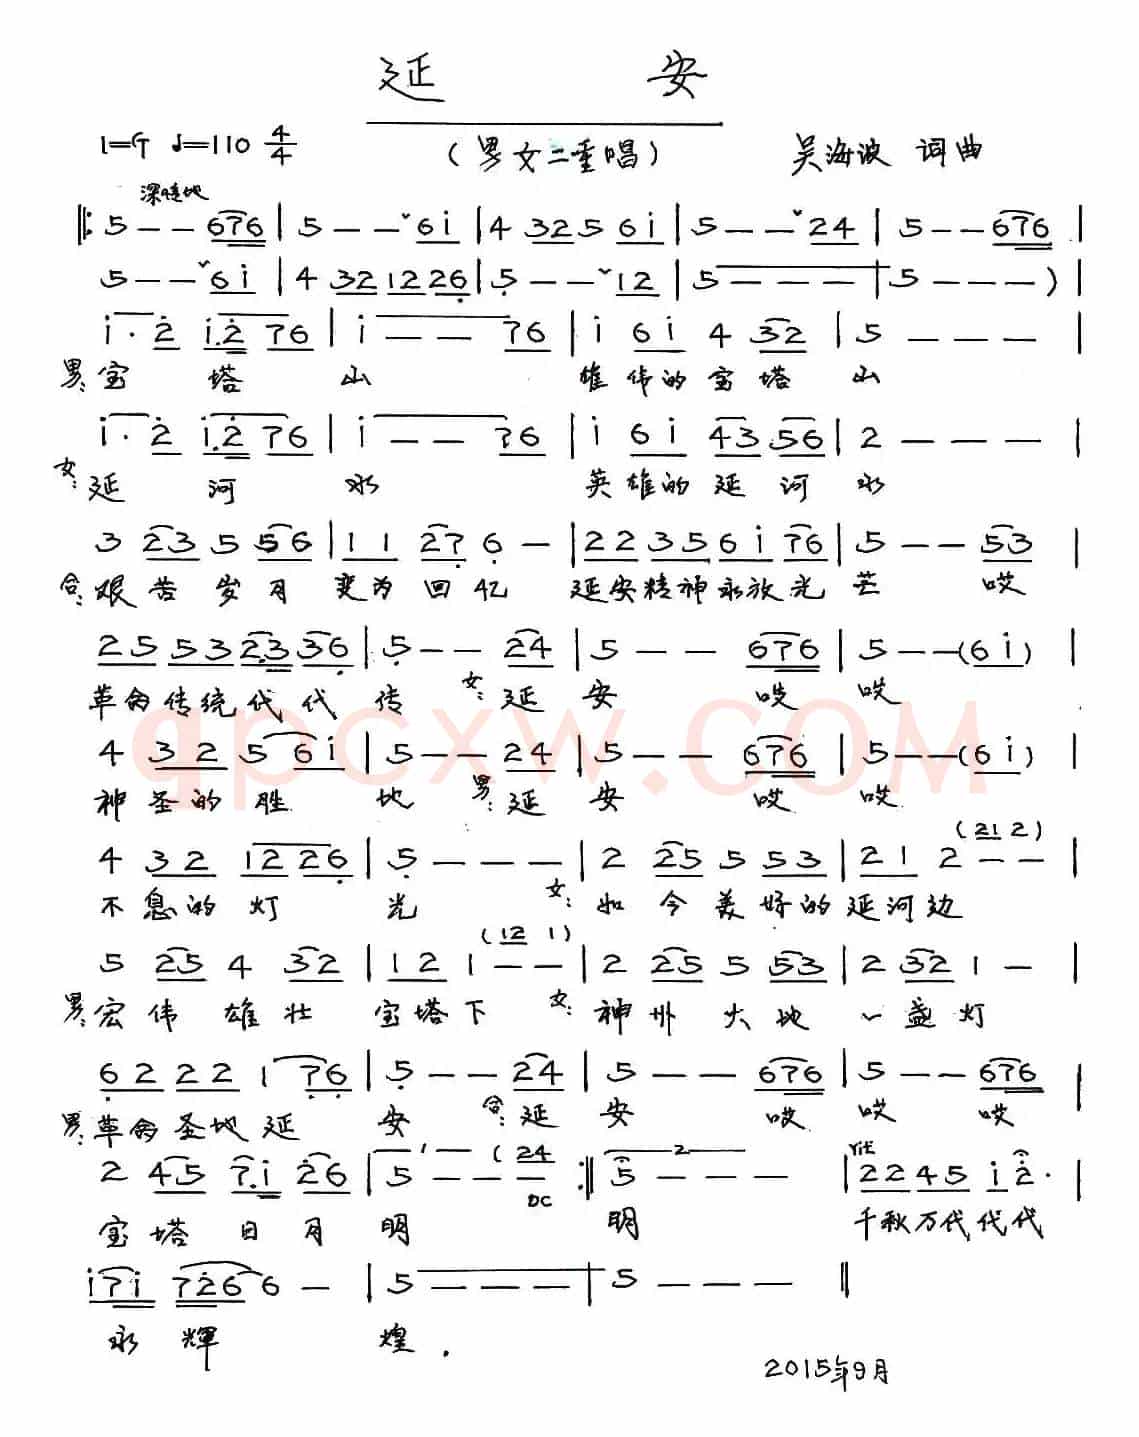 延安
1=G ♩=110 4/4 (男女二重唱) 吴海波 词曲
深情地
‖: 5 - - 676 | 5 - - ˇ 6i | 4 325 6i | 5 - - ˇ 24 | 5 - - 676 |
5 - - ˇ 6i | 4 32 12 26 | 5 - - ˇ 12 | 5 - - - | 5 - - - ) |
i· 2 i·2 76 | i - - 76 | i 6i 4 32 | 5 - - - |
男: 宝塔山 雄伟的宝塔山
i· 2 i·2 76 | i - - 76 | i 6i 43 56 | 2 - - - |
女: 延河水 英雄的延河水
3 23 5 56 | 11 27 6 - | 22 35 6i 76 | 5 - - 53 |
合: 艰苦岁月变为回忆 延安精神永放光芒 哎
25 53 2·3 36 | 5 - - 24 | 5 - - 676 | 5 - - (6i) |
革命传统代代传 女: 延安哎哎
4 32 5 6i | 5 - - 24 | 5 - - 676 | 5 - - (6i) |
神圣的胜地 男: 延安哎哎
(21 2)
4 32 12 26 | 5 - - - | 2 25 5 53 | 21 2 - - |
不息的灯光 女: 如今美好的延河边
(12 1)
5 25 4 32 | 12 1 - - | 2 25 5 53 | 2 32 1 - |
男: 宏伟雄壮宝塔下 女: 神州大地一盏灯
62 22 1 76 | 5 - - 24 | 5 - - 676 | 5 - - 676 |
男: 革命圣地延安 合: 延安哎哎哎
2 45 7·i 26 | 1 5 - - (24 - DC :‖ 2 5 - - - | 22 45 i 2· |
宝塔日月明 明 千秋万代代代
i7i 7266 - | 5 - - - | 5 - - - ‖
永辉煌.
2015年9月
qpcxw.COM